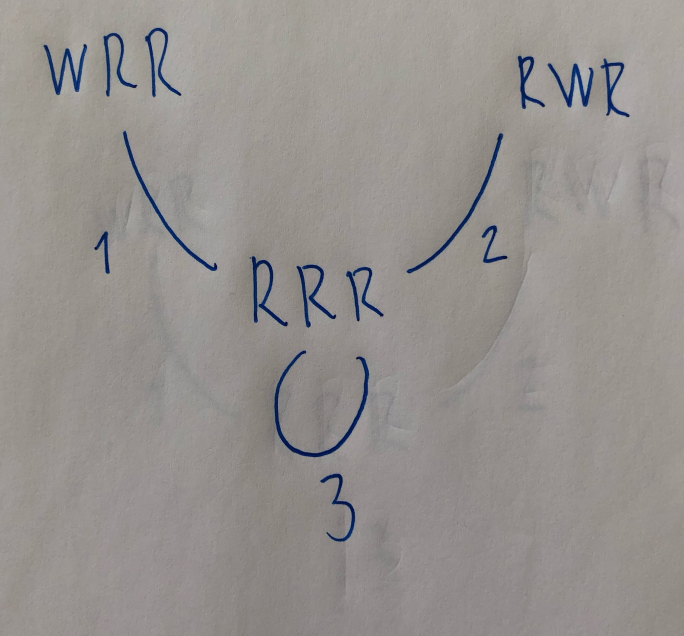 WRR RWR
1 2
RRR
3